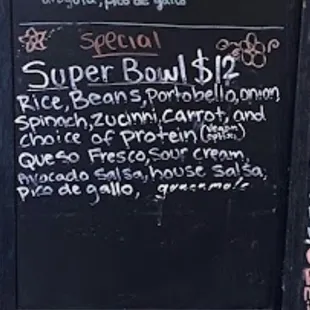 pico de gallo
Special
Super Bowl $12
Rice, Beans, Portobello, onion,
Spinach, Zucinni, Carrot, and
choice of Protein (vegan option)
Queso Fresco, Sour cream,
Avocado Salsa, house salsa,
Pico de gallo, guacamole